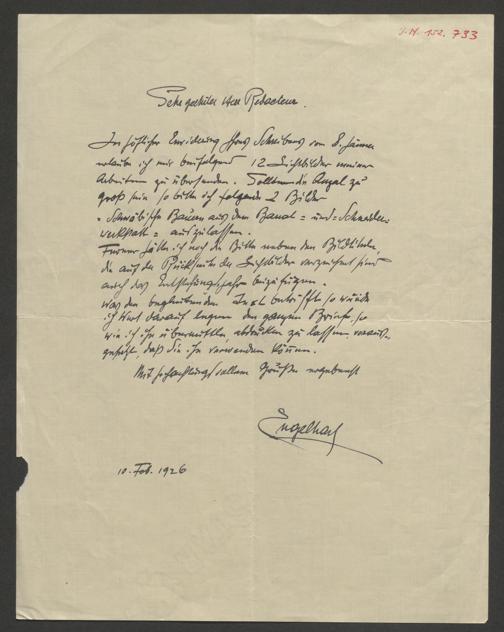 I.N. 152.733
Sehr geehrter Herr Redacteur.
In höflicher Erwiderung Ihres Schreibens vom 8. Jänner
erlaube ich mir beifolgend 12 Lichtbilder meiner
Arbeiten zu übersenden. Sollte die Anzal zu
groß sein so bitte ich folgende 2 Bilder
"Schwäbische Bauern aus dem Banat" und "Schneider-
werkstatt" auszulassen.
Ferner hätte ich noch die Bitte neben den Bildtiteln
die auf der Rückseite der Lichtbilder verzeichnet sind
auch das Entstehungsjahr beizufügen.
Was den begleitenden Text betrifft so würde
ich Wert darauf legen den ganzen Brief so
wie ich ihn übermittle abdrucken zu lassen, voraus-
gesetzt, daß Sie ihn verwenden können.
Mit hochachtungsvollem Grüßen ergebenst
Engelhart
10. Feb. 1926